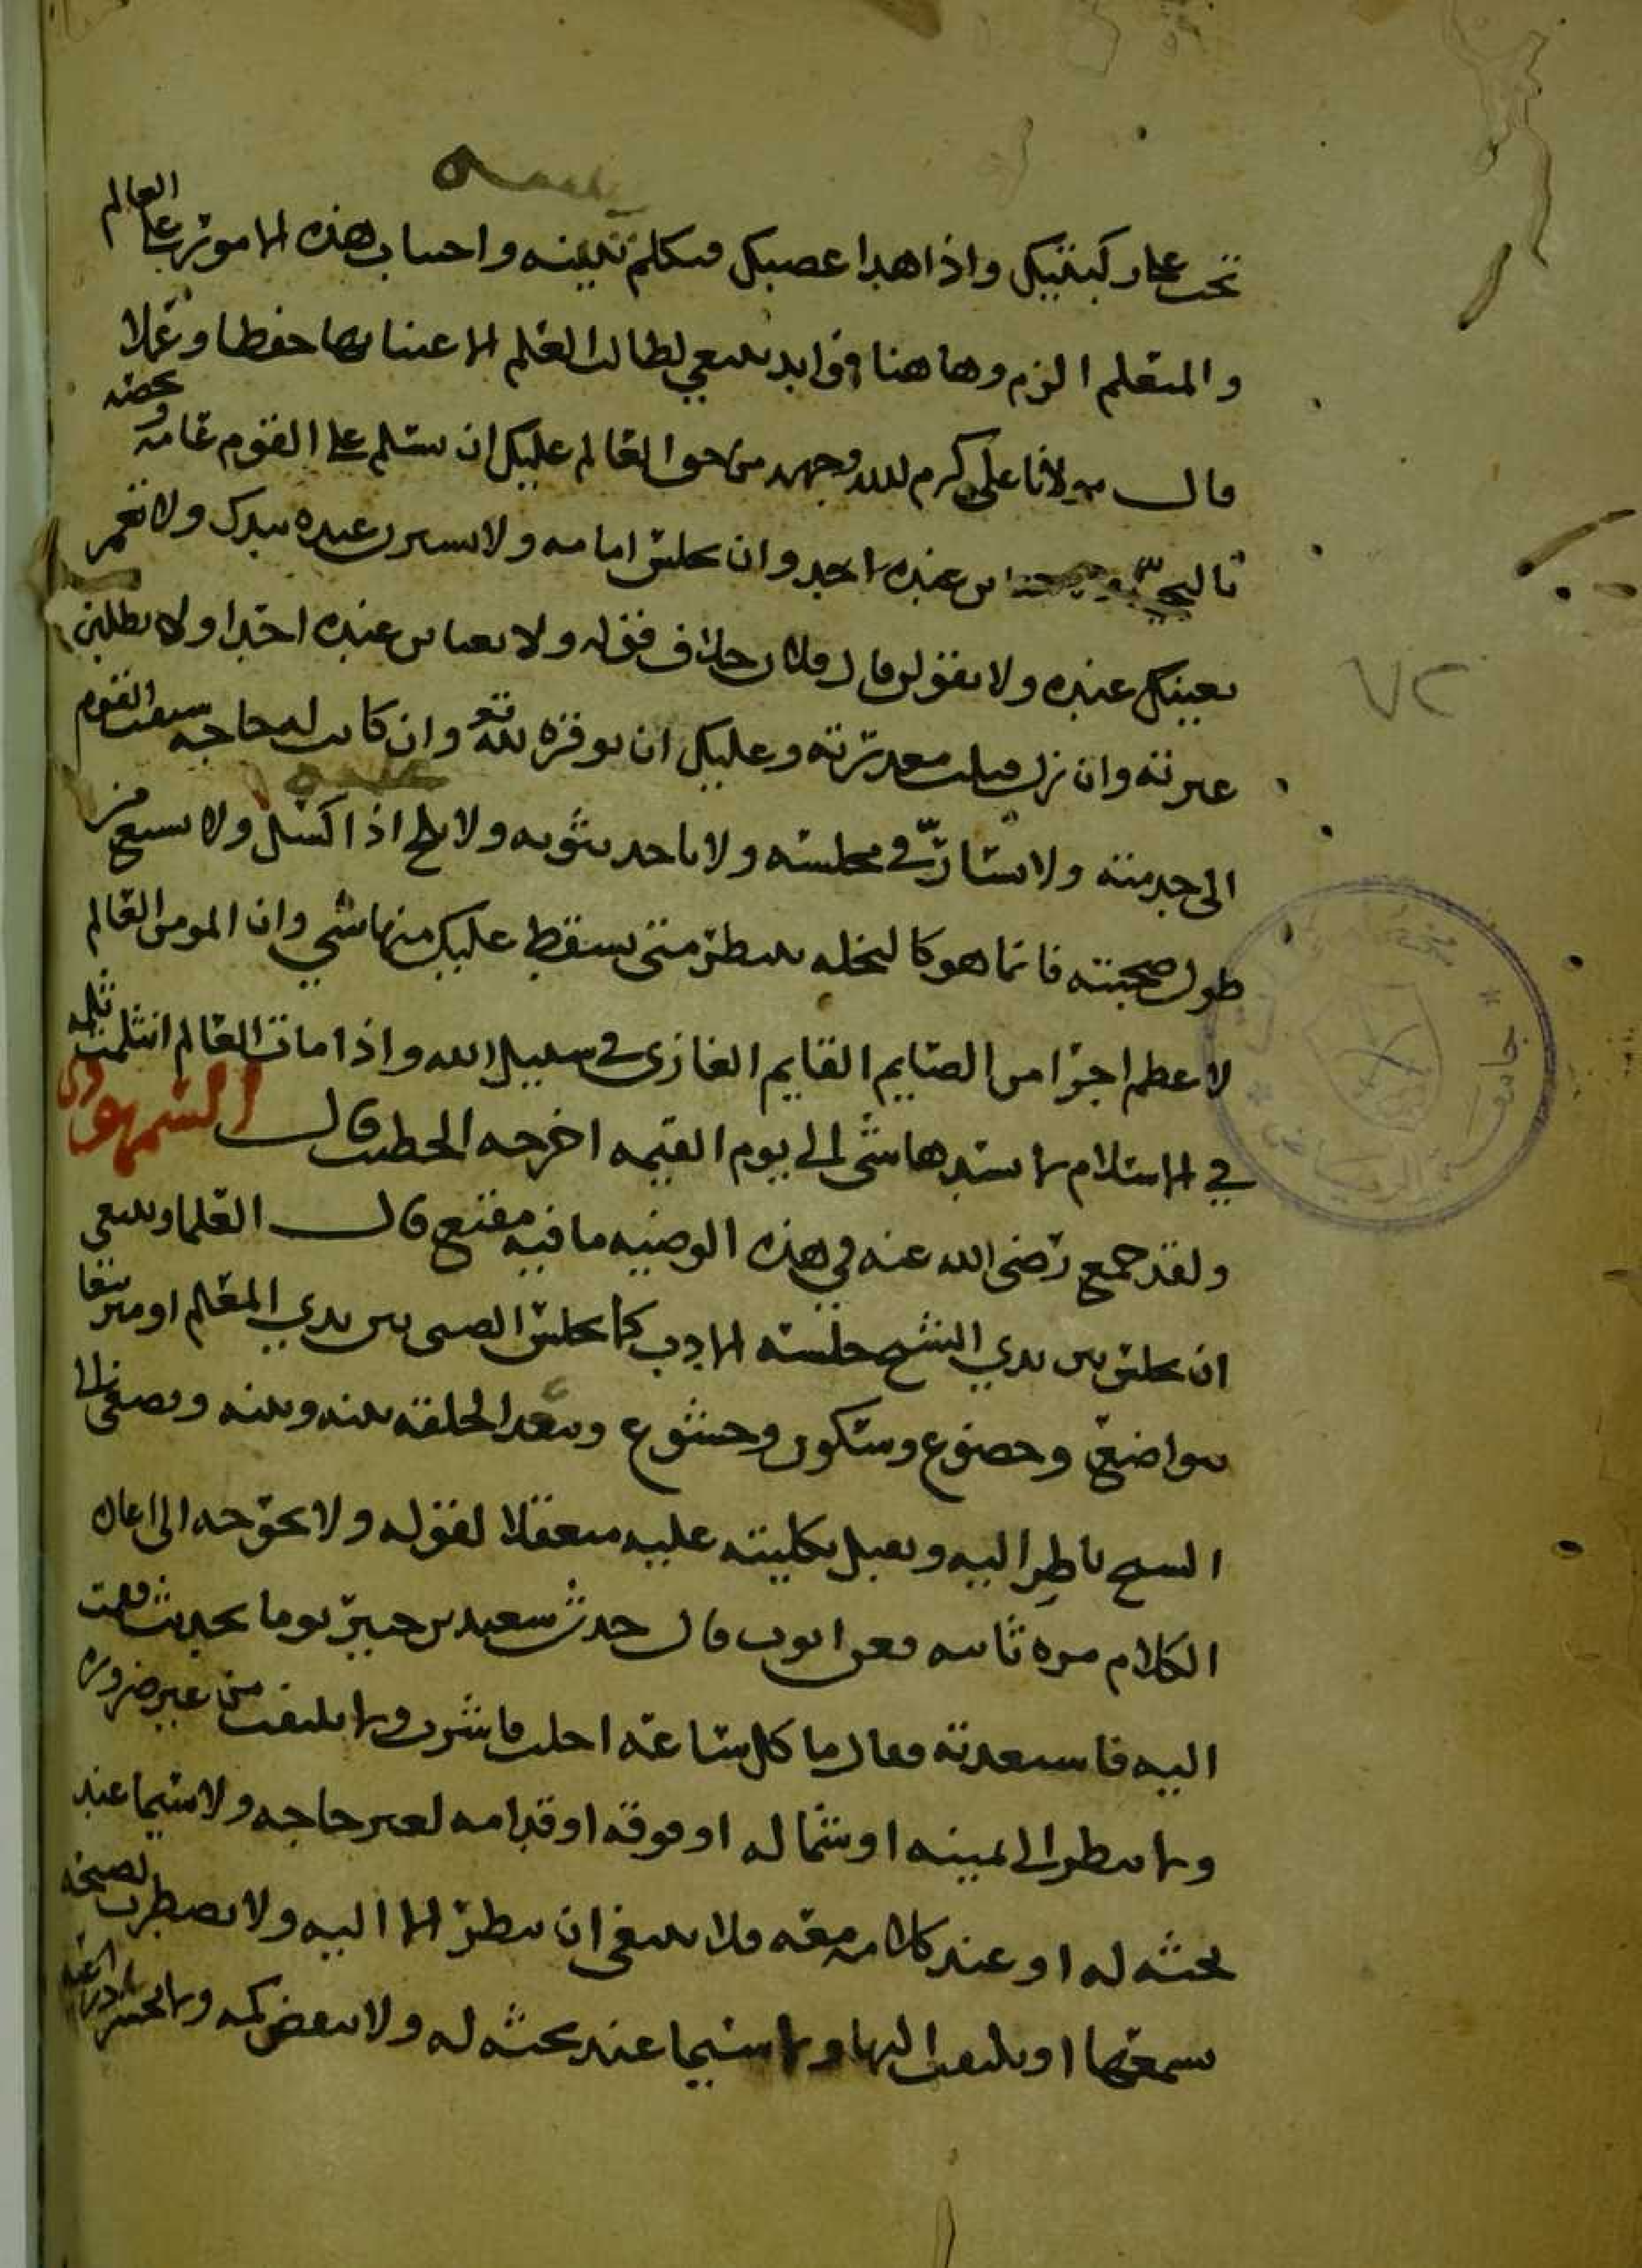 تحت على ركبتيك واذا هدا غضبك فتكلم تلينه واجتناب هذه الامور على العالم
والمتعلم الزم وهاهنا فوايد ينبغي لطالب العلم الاعتنا بها حفظا وعملا
قال مولانا علي كرم الله وجهه من حق العالم عليك ان تسلم على القوم عامه وتخصه
بالتحيه عنده احد وان تجلس امامه ولا تشيرن عنده بيدك ولا تغمز
بعينك عنده ولا تقولن قال فلان خلاف قوله ولا تغتابن عنده احدا ولا تطلبن
عثرته وان زل قبلت معذرته وعليك ان توقره لله تع وان كانت له حاجه سبقت القوم
الى خدمته ولا تسار في مجلسه ولا تاخد بثوبه ولا تلح اذا كسل ولا تشبع من
طول صحبته فانما هو كالنخله تنتظر متى يسقط عليك منها شي وان المومن العالم
لاعظم اجرا من الصايم القايم الغازي في سبيل الله واذا مات العالم انثلمت ثلمه
في الاسلام لا يسدها شي الى يوم القيمه اخرجه الخطيب قال السمهودي
ولقد جمع رضي الله عنه في هذه الوصيه ما فيه مقنع قال العلما وينبغي
ان يجلس بين يدي الشيخ جلسة الادب كما يجلس الصبي بين يدي المعلم او متربعا
بتواضع وخضوع وسكون وخشوع وبعد الحلقه بينه وبينه ويصغي الى
الشيخ ناظرا اليه ويقبل بكليته عليه متعقلا لقوله ولا يحوجه الى اعاده
الكلام مره ثانيه فعن ايوب قال حدث سعيد بن جبير يوما بحديث فقمت
اليه فاستعدته فقال ما كل ساعه احلب فاشرب ولا يلتفت من غير ضروره
ولا ينظر الى يمينه او شماله او فوقه او قدامه لغير حاجه ولا سيما عند
بحثه له او عند كلامه معه فلا ينبغي ان ينظر الا اليه ولا يضطرب لصيحه
سمعها او يلتفت اليها ولا سيما عند بحثه له ولا ينفض كمه ولا يحسر عن ذراعيه
٧٢
جامعة الرياض